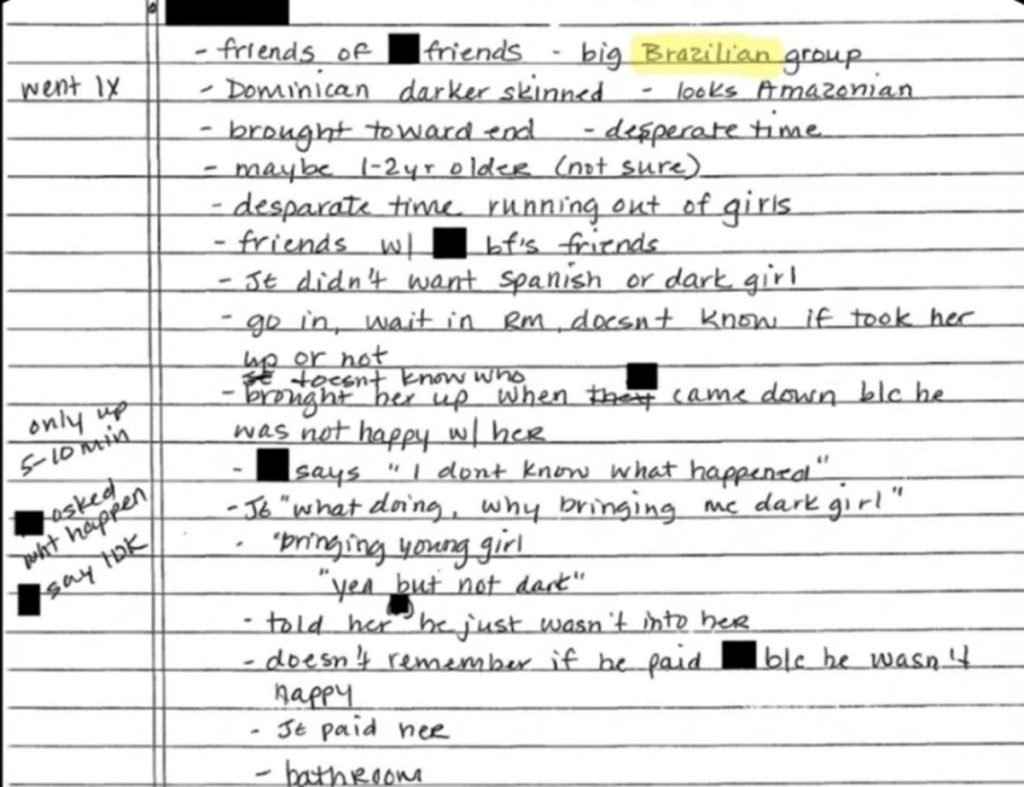 - friends of friends - big Brazilian group
went 1x
- Dominican darker skinned - looks Amazonian
- brought toward end - desperate time
- maybe 1-2yr older (not sure)
- desparate time running out of girls
- friends w/ bf's friends
- JE didn't want Spanish or dark girl
- go in, wait in Rm, doesnt know if took her
up or not
JE doesnt know who
- brought her up when they came down b/c he
was not happy w/ her
only up
5-10 min
- says "I dont know what happened"
asked
wht happen
say IDK
- JE "what doing, why bringing me dark girl"
- "bringing young girl
"yea but not dark"
- told her he just wasn't into her
- doesn't remember if he paid b/c he wasn't
happy
- JE paid her
- bathroom